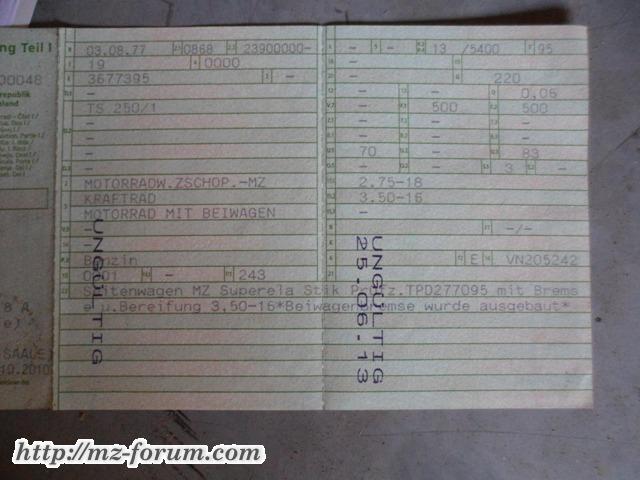 ng Teil I
03.08.77 0868 23900000-
19 0000
3677395 -
-
TS 250/1
-
-
-
MOTORRADW.ZSCHOP.-MZ
KRAFTRAD
MOTORRAD MIT BEIWAGEN
-
-
Benzin
0001 - 243
- - 13 /5400 95
-
- 220
- - 0,06
- 500 500
-
-
70 - 83
- - 3 -
2.75-18
3.50-16
-
- -/-
-
- E VN205242
-
Seitenwagen MZ Superela Stik P tz.TPD277095 mit Brems
e u.Bereifung 3.50-16*Beiwagenbremse wurde ausgebaut*
00048
republik
land
8 A
e)
SAALE)
.10.2010
UNGÜLTIG
UNGÜLTIG
25.06.13
http://mz-forum.com